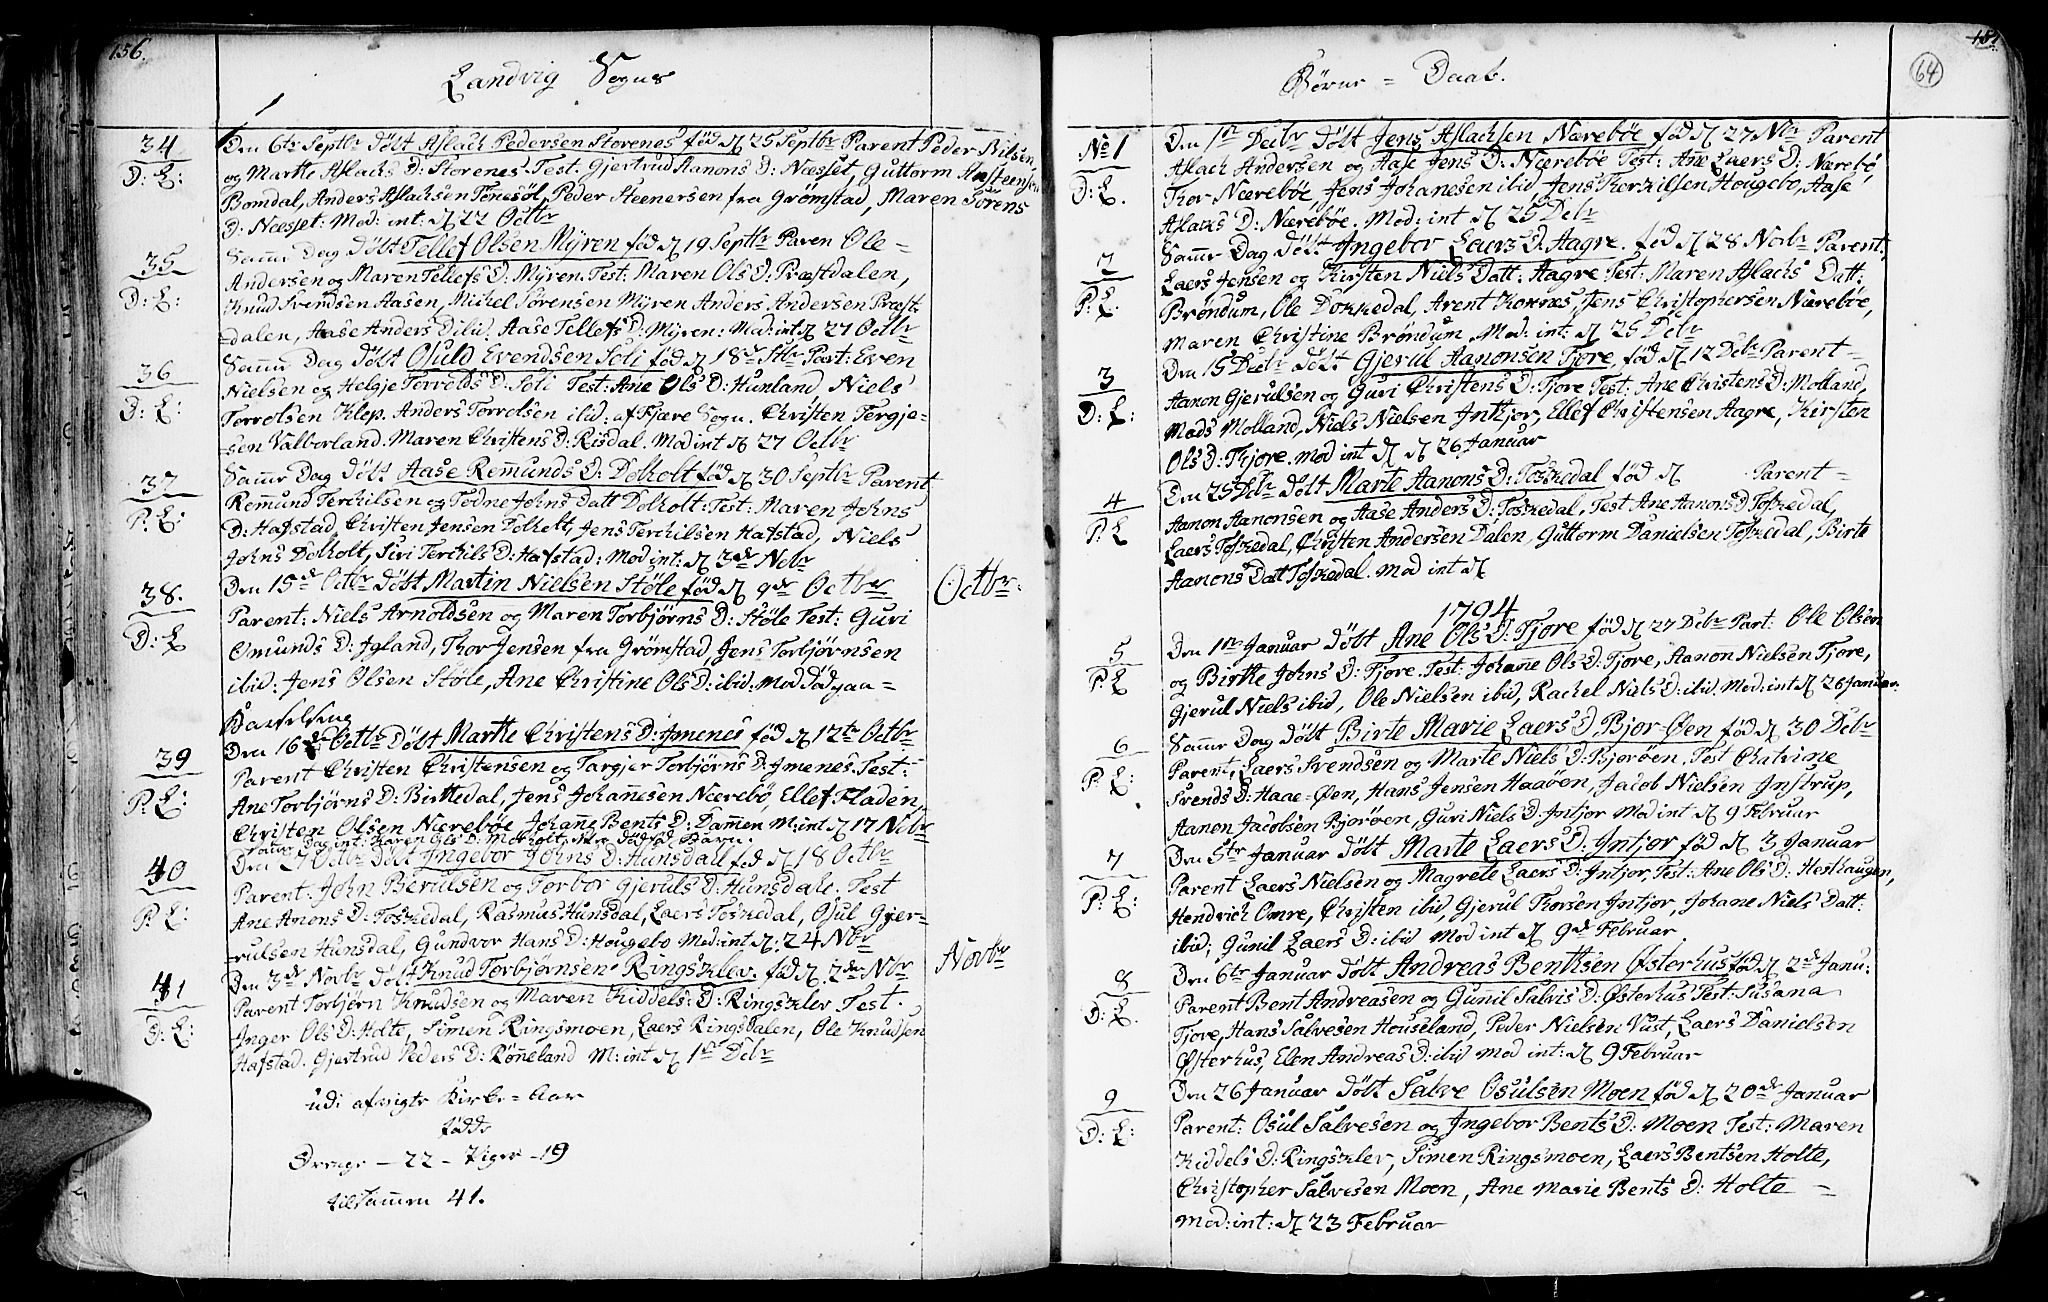 156.
Landvig Sogns
34
D: L:
Den 6te Septbr döbt Aslach Pedersen Storenes fød d 25 Septbr Parent Peder Nilsen
og Marthe Aslachs D: Storenes Test: Gjertrud Aanons D: Næsset, Guttorm Ansteensen
Bomdal, Anders Aslachsen Tonesöl, Peder Steenersen fra Grömstad, Maren Sörens
D: Næsset: Mod: int d 22 Octbr
35
D: L:
Samme Dag döbt Tellef Olsen Myren fød d 19 Septbr Paren Ole=
Andersen og Maren Tellefs D: Myren. Test: Maren Ols D: Præstdalen,
Knud Svendsen Aasen, Michel Sörensen Myren Anders Andersen Præst-
=dalen, Aase Anders D ibid: Aase Tellefs D: Myren: Mod: int d 27 Octbr
36
D: L:
Samme Dag döbt Osuld Evendsen Soli fød d 18de Stbr Part: Even
Nielsen og Helgje Torrolds D: Soli Test: Ane Ols D: Hunland Niels
Torrolsen Klep. Anders Torrolsen ibid: af Fjære Sogn. Christen Tergje=
=sen Valborland. Maren Christens D: Risdal. Mod int d 27 Octbr
37
P: L:
Samme Dag döbt Aase Remunds D: Dolholt fød d 30 Septbr Parent
Remund Terchilsen og Todne Johns Datt Dolholt: Test: Maren Johns
D: Hafstad Christen Jensen Dolholt, Jens Terchilsen Hafstad, Niels
Johns Dolholt, Siri Terchils D: Hafstad: Mod: int: d 3de Nobr
38.
D: L
Den 15de Octbr döbt Martin Nielsen Stöle fød d 9de Octbr
Octbr:
Parent: Niels Arnoldsen og Maren Torbjörns D: Stöle Test: Guri
Omunds D: Igland, Thor Jensen fra Grömstad, Jens Torbjörnsen
ibid: Jens Olsen Stöle, Ane Christine Ols D: ibid: Mod död paa=
Barselseng
39
P: L:
Den 16de Octbr Döbt Marthe Christens D: Imenes fød d 12te Octbr
Parent Christen Christensen og Targjer Torbjörns D: Imenes. Test:
Ane Torbjörns D: Birkedal, Jens Johannesen Nærebö, Ellef Fladen,
Christen Olsen Næreböe Johanne Bents D: Dammen M: int d 17 Nobr
Samme Dag int: Karen Ols D: Morholt, den dödfød Barn.
40
P. L:
Den 27 Octbr döbt Ingebor Johns D: Hunsdal fød d 18 Octbr
Parent. John Berulsen og Torbor Gjeruls D: Hunsdale. Test
Ane Anons D: Toskedal, Rasmus Hunsdal, Laers Toskedal, Osul Gjer-
=rulsen Hunsdal, Gundvor Hans D: Hougebo Mod: int d: 24 Nbr
41
D: L:
Den 3de Novbr döbt Knud Torbjörnsen Ringsklev. fød d. 2de Nbr
Novbr
Parent Torbjörn Knudsen og Maren Kiddels: D: Ringsklev Test.
Inger Ols D: Holte, Simen Ringsmoen, Laers Ringsdalen, Ole Knudsen
Hafstad. Gjertrud Peders D: Rönneland M: int d 1ste Debr
udi afvigte Kirke=Aar
födde
Drenge — 22 — Piger — 19
tilsammen 41.
64
Börne = Daab.
No 1
D: L.
Den 1ste Decbr döbt Jens Aslachsen Næreböe fød d 27 Nbr Parent
Aslach Andersen og Aase Jens D: Næreböe Test: Ane Laers D: Nærebö
Thor Næreböe, Jens Johanesen ibid Jens Therkilsen Hougebo, Aase
Aslachs D: Næreböe. Mod: int d 25 Debr
2
P: L:
Samme Dag döbt Ingebor Laers D: Aagre. fød d 28 Novbr Parent:
Laers Jensen og Kirsten Niels Datt: Aagre Test: Maren Aslachs Datt:
Bröndum, Ole Dokkedal, Arent Koxnes, Jens Christophersen Næreböe,
Maren Christine Bröndum, Mod: int: d 25 Debr
3
D: L:
Den 15 Decbr döbt Gjerul Aanonsen Fjore, fød d 12 Debr Parent=
Aanon Gjerulsen og Guri Christens D: Fjore Test: Ane Christens D: Molland,
Mads Molland, Niels Nielsen Inthjor, Ellef Christensen Aagre, Kirsten
Ols D: Thjore. Mod int d d 26 Januar
4
P. L
Den 25 Debr döbt Marte Aanons D: Toskedal fød d Parent=
Aanon Aanonsen og Aase Anders D: Toskedal, Test Ane Aanons D Toskedal,
Laers Toskedal, Christen Andersen Dalen, Guttorm Danielsen Toskedal, Birte
Aanons Datt Toskedal. Mod int d
1794
5
P: L
Den 1ste Januar döbt Ane Ols D: Fjore fød d 27 Debr Part: Ole Olsen
og Birthe Johns D: Fjore. Test: Johane Ols D: Fjore, Aanon Nielsen Fjore,
Gjerul Niels ibid, Ole Nielsen ibid, Rachel Niels D: ibid. Mod: int d 26 Januar.
6
P: L:
Samme Dag döbt Birte Marie Laers D Bjor-Øen fød d 30 Debr
Parent, Laers Svendsen og Marte Niels D: Bjoröen, Test Chatrine
Svends D: Haae=Øen, Hans Jensen Haaöen, Jacob Nielsen Instrup,
Aanon Jacobsen Bjoröen, Guri Niels D: Intjor Mod int d 9 Februar
7
P: L:
Den 5te Januar döbt Marte Laers D: Intjor fød d 3 Januar
Parent Laers Nielsen og Magrete Laers D: Intjor, Test: Ane Ols D: Hesthaugen,
Hendrich Omre, Christen ibid, Gjerul Thorsen Intjor, Johane Niels Datt:
ibid; Gunil Laers D: ibid Mod int d 9de Februar
8
D: L.
Den 6te Januar döbt Andreas Benthsen Østerhus fød d 2de Janu:
Parent Bent Andreasen og Gunnil Salvis D: Østerhus Test: Susana
Fjore, Hans Salvesen Houseland, Peder Nielsen Vust, Laers Danielsen
Østerhus, Elen Andreas D: ibid Mod int: d 9 Februar
9
D: L:
Den 26 Januar döbt Salve Osulsen Moen fød d 20de Januar
Parent: Osul Salvesen og Ingebor Bents D: Moen Test: Maren
Kiddels D: Ringsklev, Simen Ringsmoen, Laers Bentsen Holte,
Christopher Salvesen Moen, Ane Marie Bents D: Holte =
Mod: int: d 23 Februar